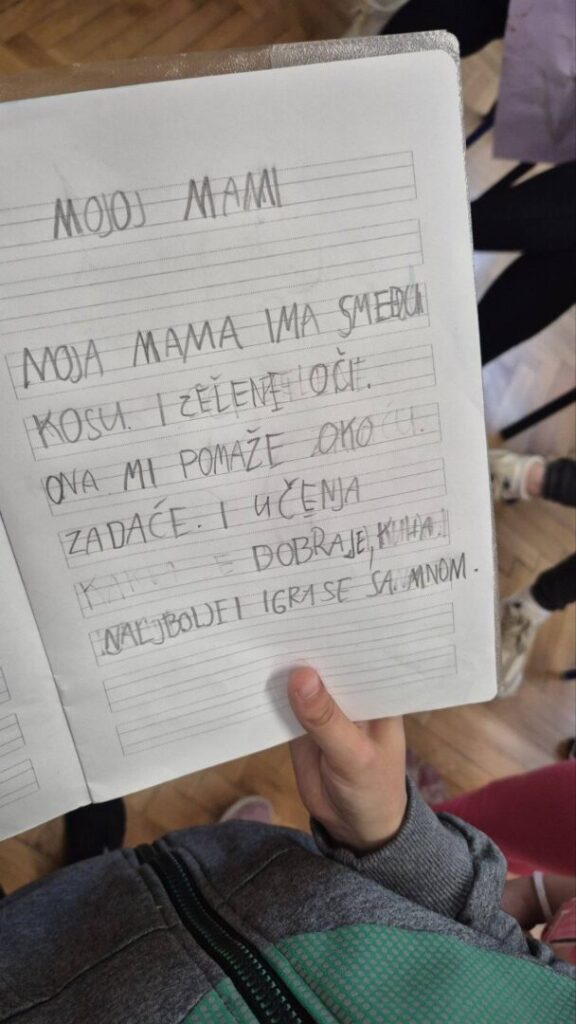 MOJOJ MAMI
MOJA MAMA IMA SMEĐU
KOSU. I ZELENE OČI.
ONA MI POMAŽE OKO
ZADAĆE. I UČENJA
DOBRA JE,
NAJBOLJE I IGRA SE SA MNOM.